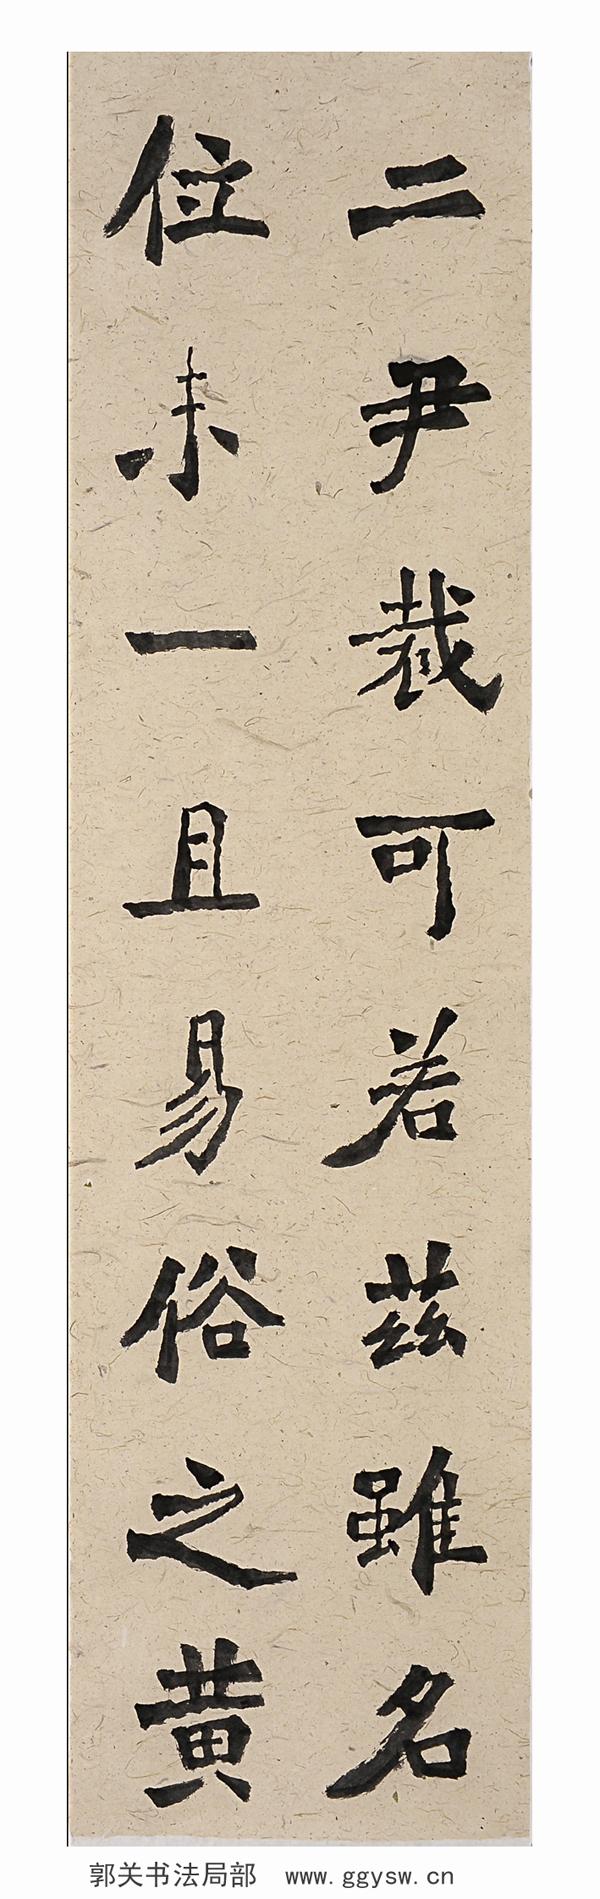 二尹裁可若茲雖名
位未一且易俗之黄
郭关书法局部 www.ggysw.cn